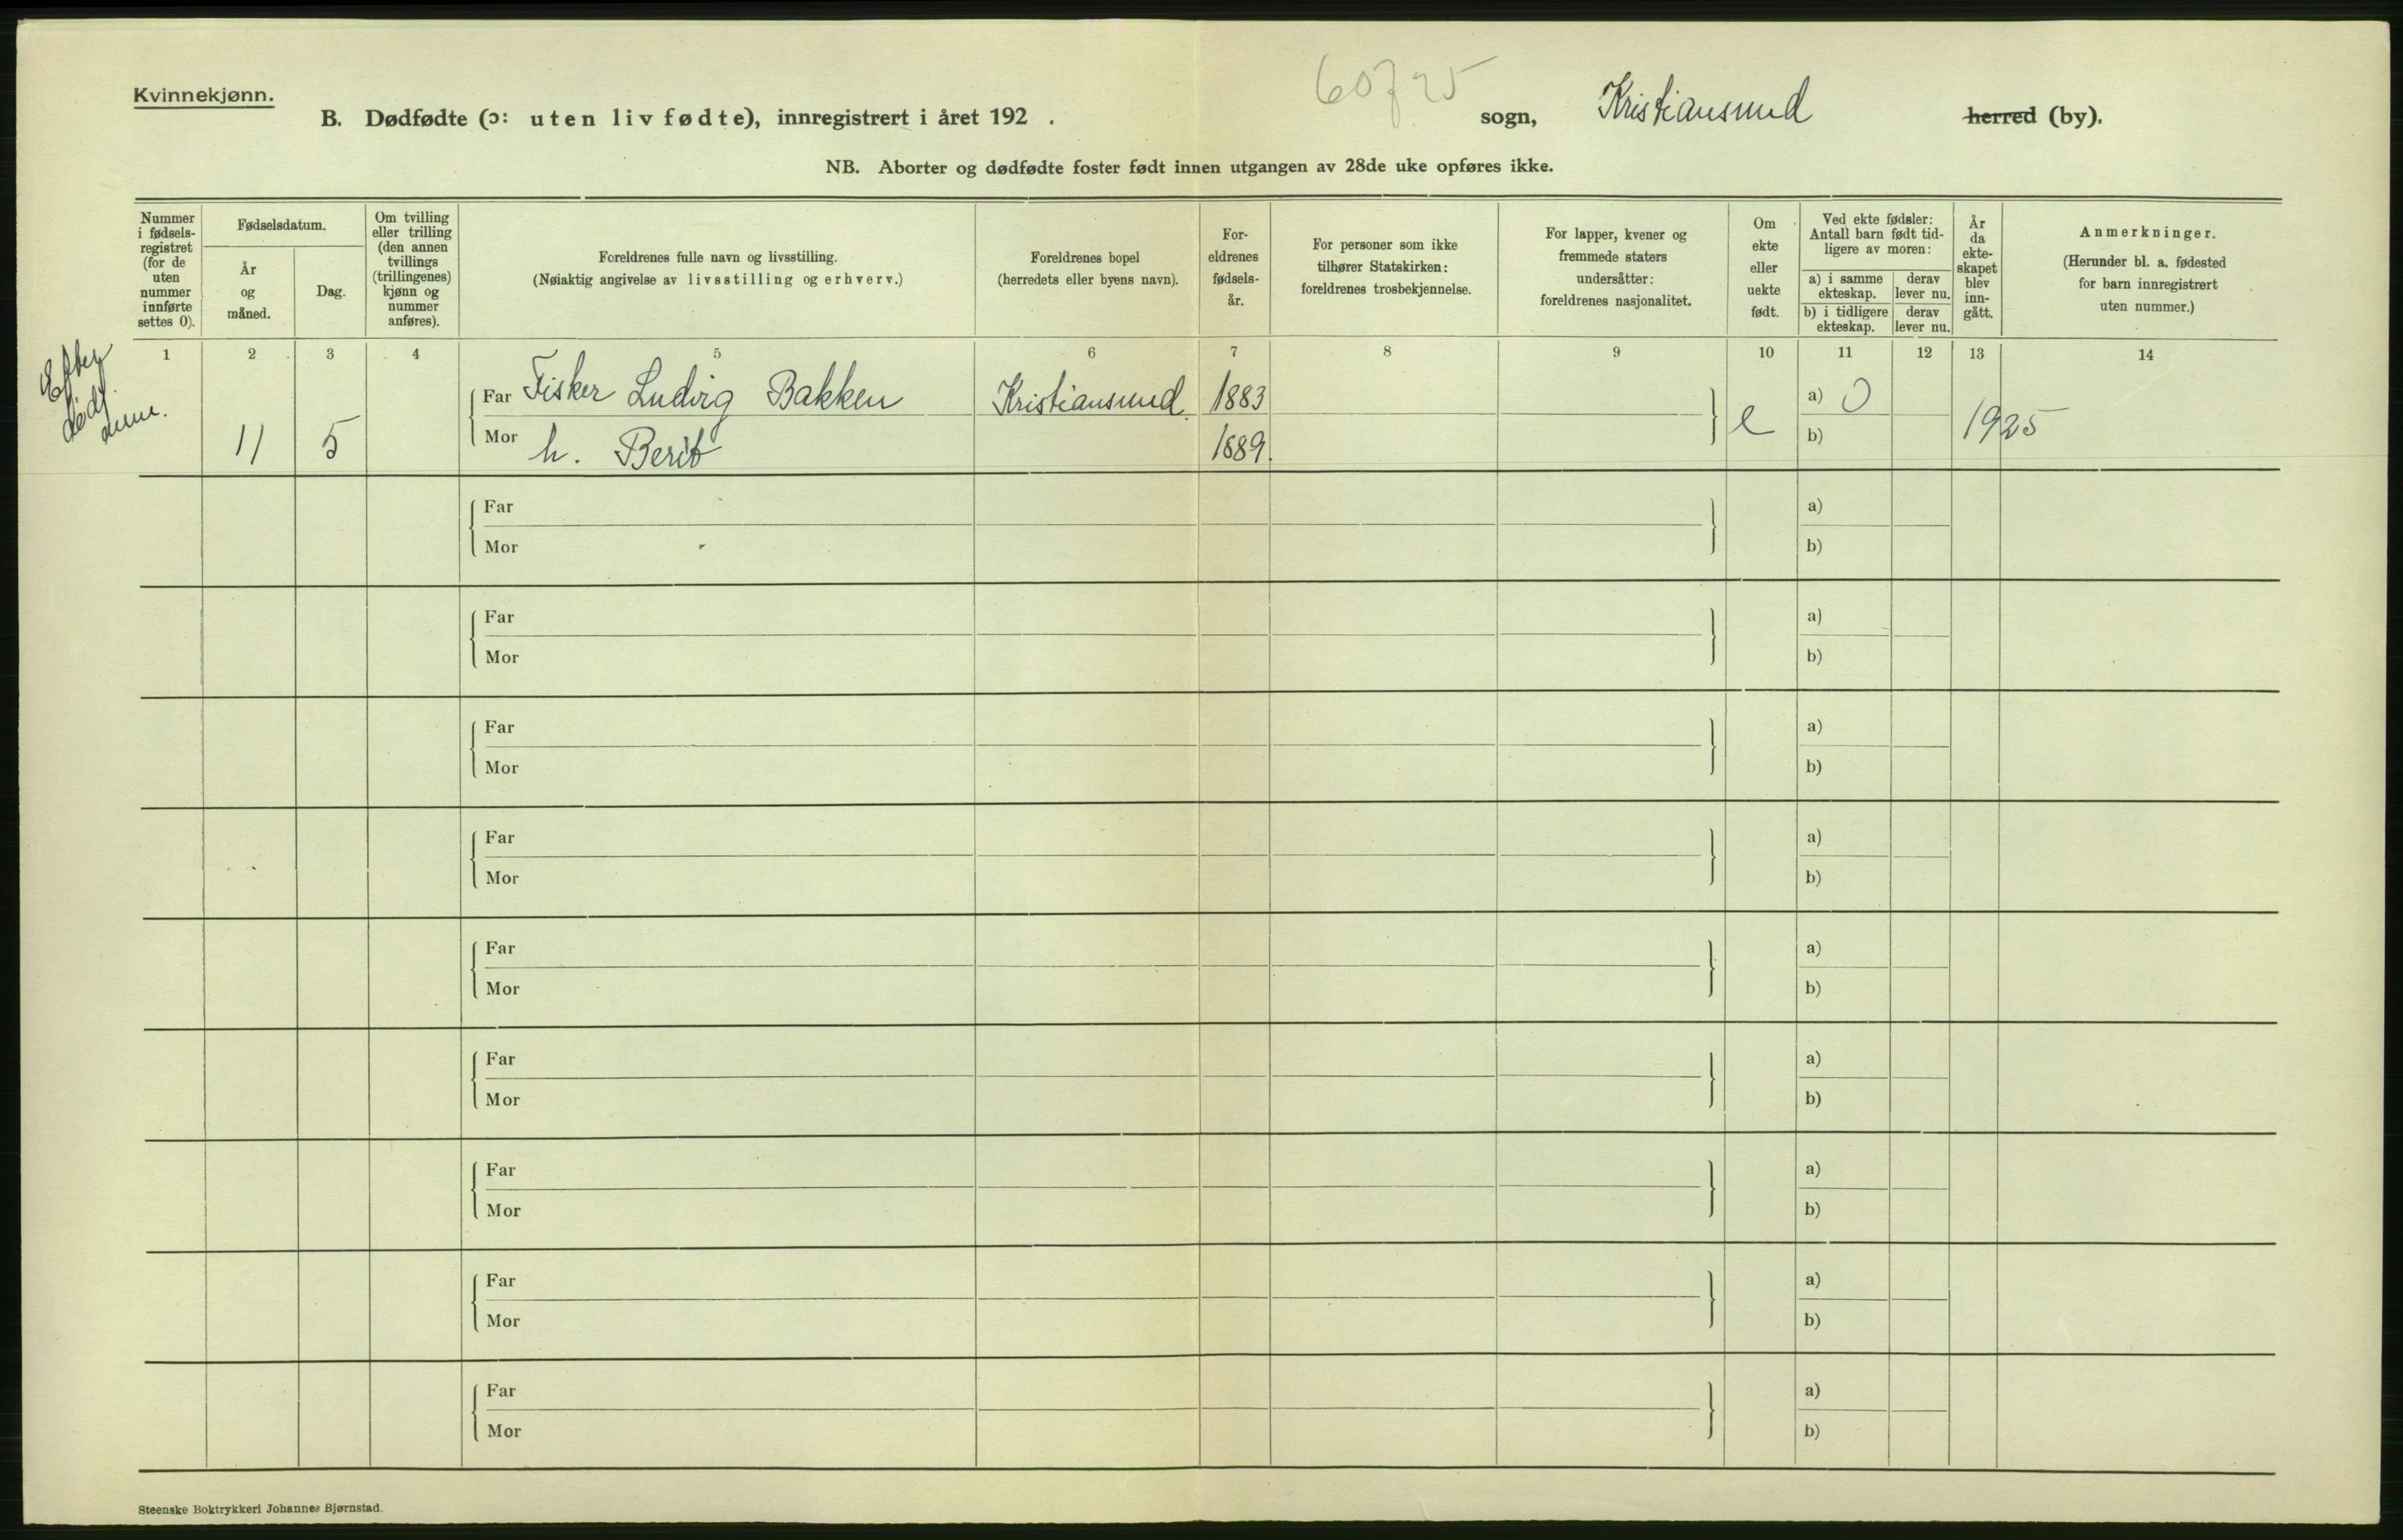 Kvinnekjønn.
B. Dødfødte (ɔ: uten liv fødte), innregistrert i året 192 .
sogn, Kristiansund herred (by).
NB. Aborter og dødfødte foster født innen utgangen av 28de uke opføres ikke.
Nummer
i fødsels-
registret
(for de
uten
nummer
innførte
settes 0).
Fødselsdatum.
År
og
måned.
Dag.
Om tvilling
eller trilling
(den annen
tvillings
(trillingenes)
kjønn og
nummer
anføres).
Foreldrenes fulle navn og livsstilling.
(Nøiaktig angivelse av livsstilling og erhverv.)
Foreldrenes bopel
(herredets eller byens navn).
For-
eldrenes
fødsels-
år.
For personer som ikke
tilhører Statskirken:
foreldrenes trosbekjennelse.
For lapper, kvener og
fremmede staters
undersåtter:
foreldrenes nasjonalitet.
Om
ekte
eller
uekte
født.
Ved ekte fødsler:
Antall barn født tid-
ligere av moren:
a) i samme
ekteskap.
derav
lever nu.
b) i tidligere
ekteskap.
derav
lever nu.
År
da
ekte-
skapet
blev
inn-
gått.
Anmerkninger.
(Herunder bl. a. fødested
for barn innregistrert
uten nummer.)
1 2 3 4 5 6 7 8 9 10 11 12 13 14
Efter
Far Fisker Ludvig Bakken Kristiansund. 1883 a) 0
11 5 Mor h. Berit 1889. e b) 1925
Far a)
Mor b)
Far a)
Mor b)
Far a)
Mor b)
Far a)
Mor b)
Far a)
Mor b)
Far a)
Mor b)
Far a)
Mor b)
Far a)
Mor b)
Far a)
Mor b)
Steenske Boktrykkeri Johannes Bjørnstad.